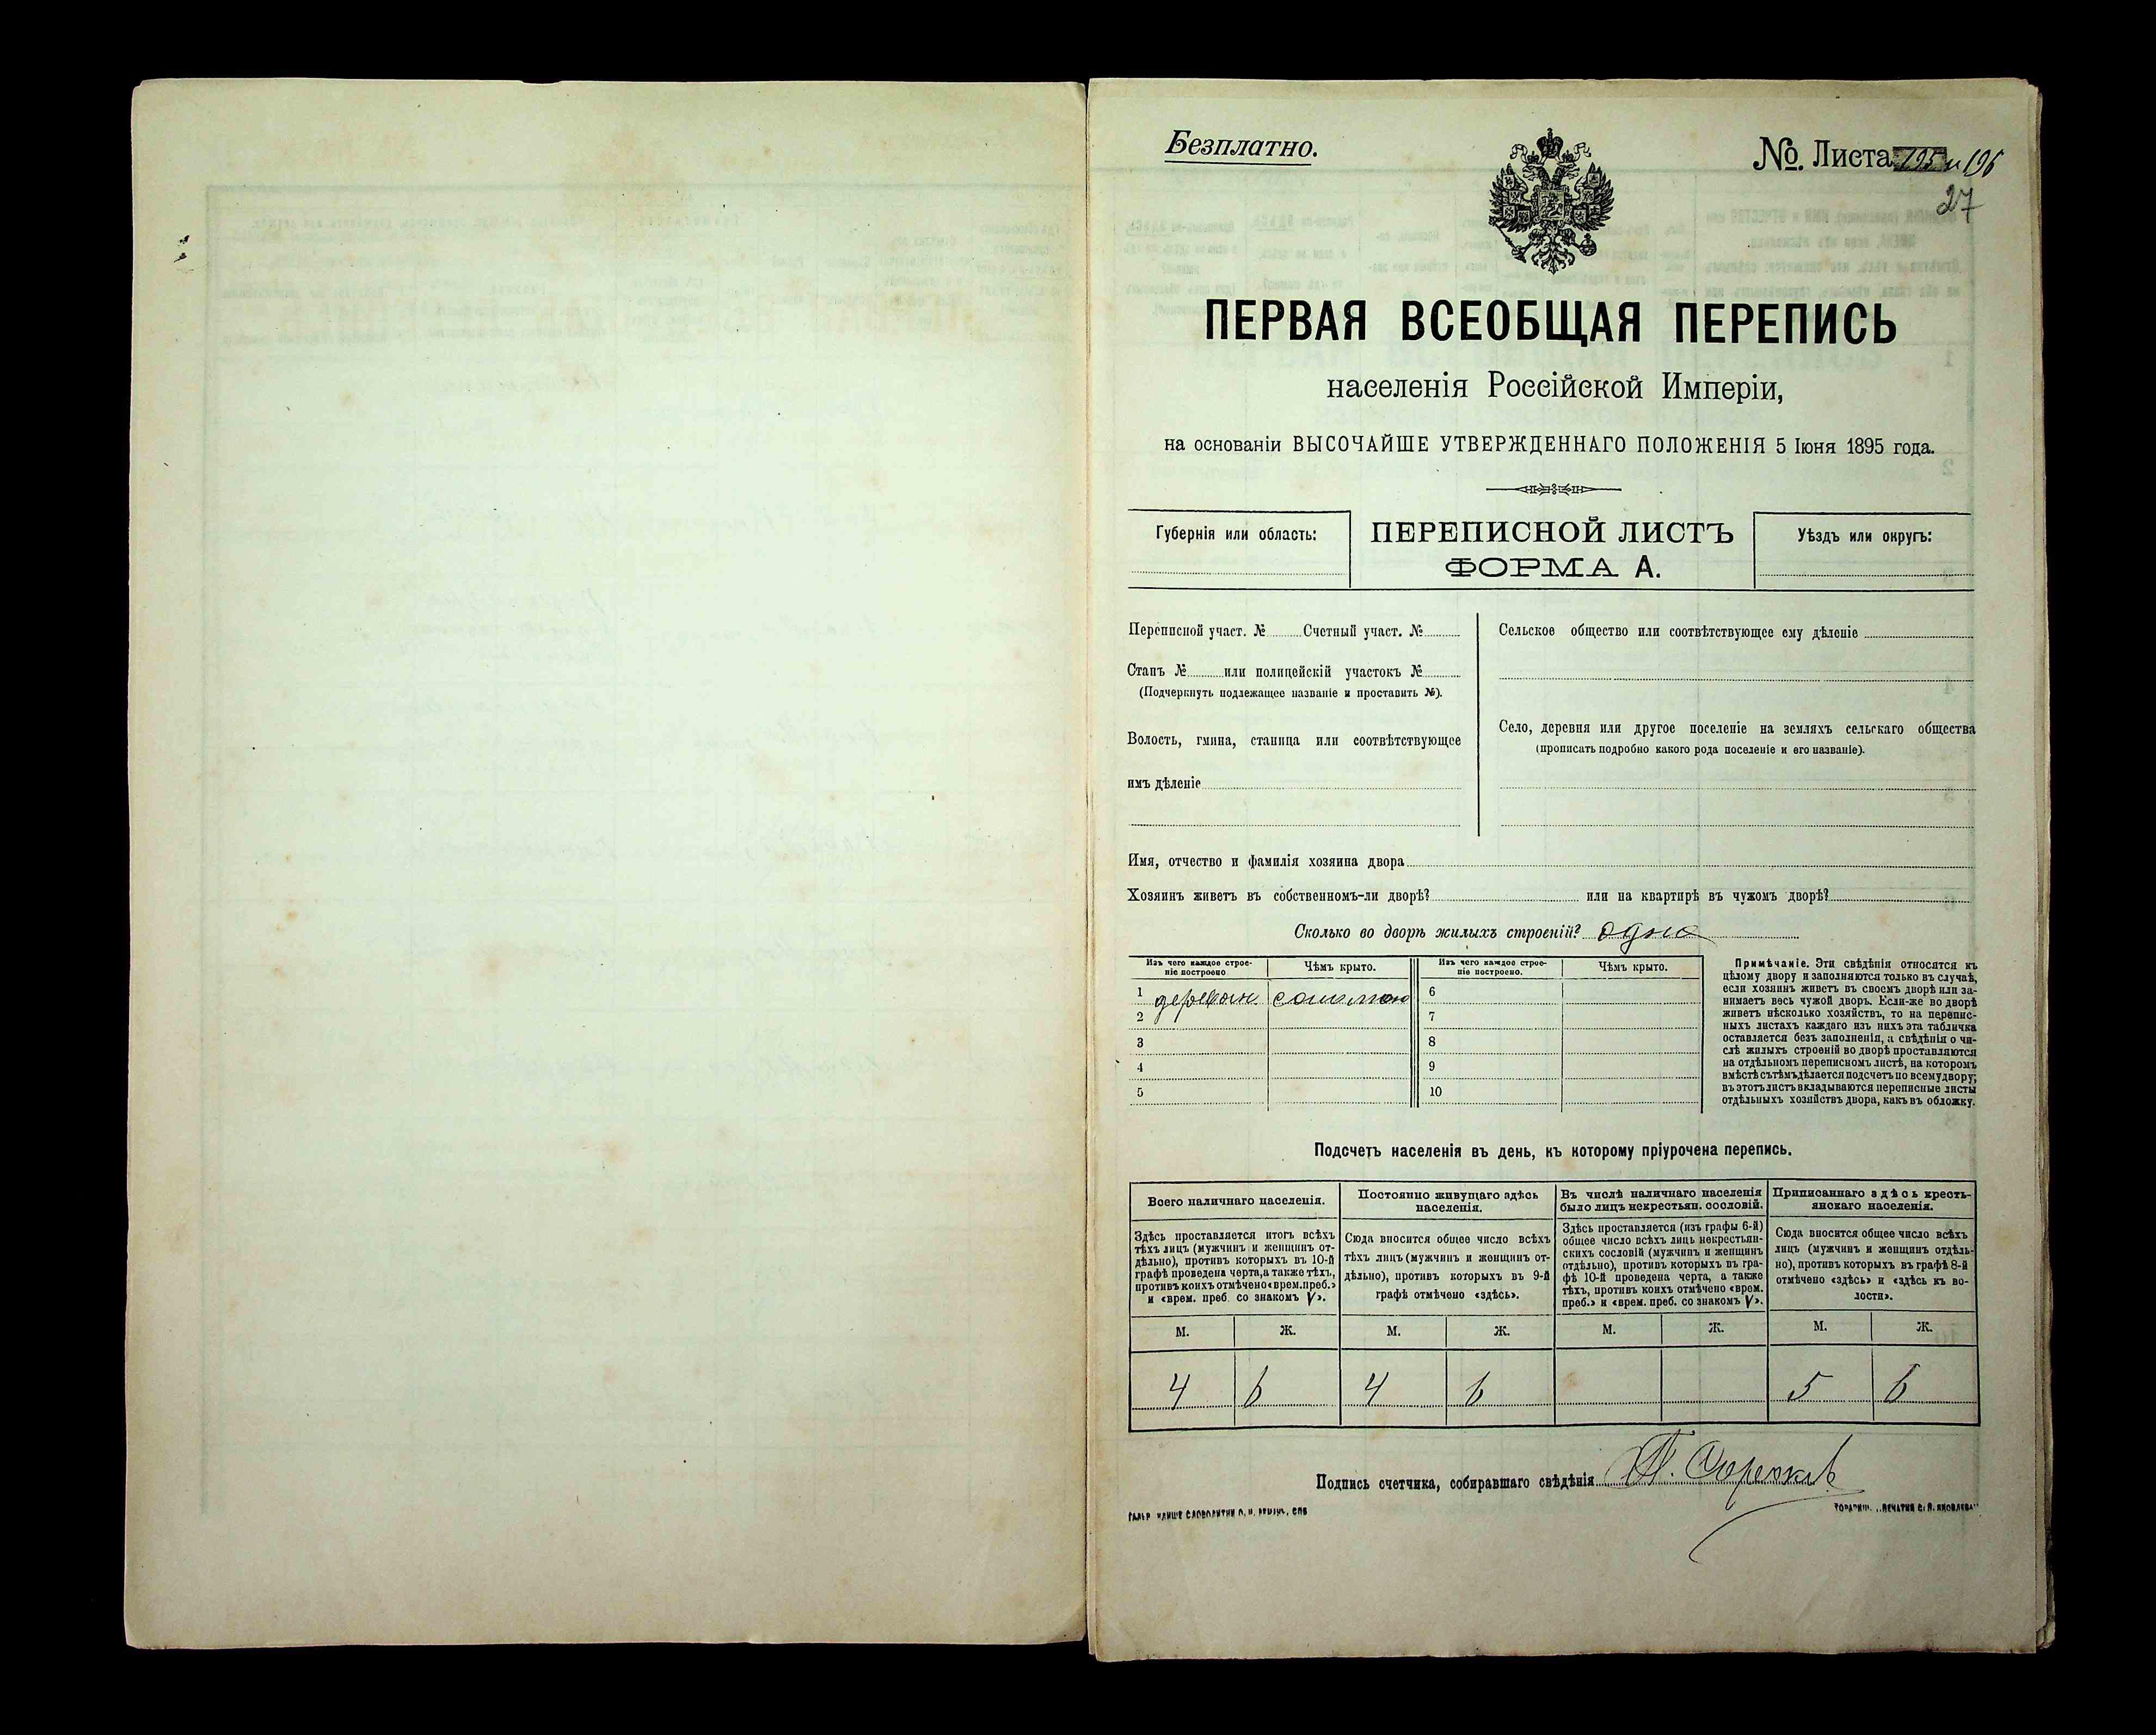 Безплатно.
№. Листа 195 и 196
27
ПЕРВАЯ ВСЕОБЩАЯ ПЕРЕПИСЬ
населенія Россійской Имперіи,
на основаніи ВЫСОЧАЙШЕ УТВЕРЖДЕННАГО ПОЛОЖЕНІЯ 5 Іюня 1895 года.
Губернія или область:
ПЕРЕПИСНОЙ ЛИСТЪ
ФОРМА А.
Уѣздъ или округъ:
Переписной участ. № Счетный участ. №
Станъ № или полицейскій участокъ №
(Подчеркнуть подлежащее названіе и проставить №).
Волость, гмина, станица или соотвѣтствующее
имъ дѣленіе
Сельское общество или соотвѣтствующее ему дѣленіе
Село, деревня или другое поселеніе на земляхъ сельскаго общества
(прописать подробно какого рода поселеніе и его названіе).
Имя, отчество и фамилія хозяина двора
Хозяинъ живетъ въ собственномъ-ли дворѣ? или на квартирѣ въ чужомъ дворѣ?
Сколько во дворѣ жилыхъ строеній? одно
Изъ чего каждое строе-
ніе построено
Чѣмъ крыто.
Изъ чего каждое строе-
ніе построено.
Чѣмъ крыто.
1 деревян. соломою
2
3
4
5
6
7
8
9
10
Примѣчаніе. Эти свѣдѣнія относятся къ
цѣлому двору и заполняются только въ случаѣ,
если хозяинъ живетъ въ своемъ дворѣ или за-
нимаетъ весь чужой дворъ. Если-же во дворѣ
живетъ нѣсколько хозяйствъ, то на перепис-
ныхъ листахъ каждаго изъ нихъ эта табличка
оставляется безъ заполненія, а свѣдѣнія о чи-
слѣ жилыхъ строеній во дворѣ проставляются
на отдѣльномъ переписномъ листѣ, на которомъ
вмѣстѣ сътѣмъ дѣлается подсчетъ по всему двору;
въ этотъ листъ вкладываются переписные листы
отдѣльныхъ хозяйствъ двора, какъ въ обложку.
Подсчетъ населенія въ день, къ которому пріурочена перепись.
Всего наличнаго населенія.
Здѣсь проставляется итогъ всѣхъ
тѣхъ лицъ (мужчинъ и женщинъ от-
дѣльно), противъ которыхъ въ 10-й
графѣ проведена черта, а также тѣхъ,
противъ коихъ отмѣчено «врем. преб.»
и «врем. преб. со знакомъ V».
Постоянно живущаго здѣсь
населенія.
Сюда вносится общее число всѣхъ
тѣхъ лицъ (мужчинъ и женщинъ от-
дѣльно), противъ которыхъ въ 9-й
графѣ отмѣчено «здѣсь».
Въ числѣ наличнаго населенія
было лицъ некрестьян. сословій.
Здѣсь проставляется (изъ графы 6-й)
общее число всѣхъ лицъ некрестьян-
скихъ сословій (мужчинъ и женщинъ
отдѣльно), противъ которыхъ въ гра-
фѣ 10-й проведена черта, а также
тѣхъ, противъ коихъ отмѣчено «врем.
преб.» и «врем. преб. со знакомъ V».
Приписаннаго здѣсь кресть-
янскаго населенія.
Сюда вносится общее число всѣхъ
лицъ (мужчинъ и женщинъ отдѣль-
но), противъ которыхъ въ графѣ 8-й
отмѣчено «здѣсь» и «здѣсь къ во-
лости».
М. Ж. М. Ж. М. Ж. М. Ж.
4 6 4 6 5 6
Подпись счетчика, собиравшаго свѣдѣнія